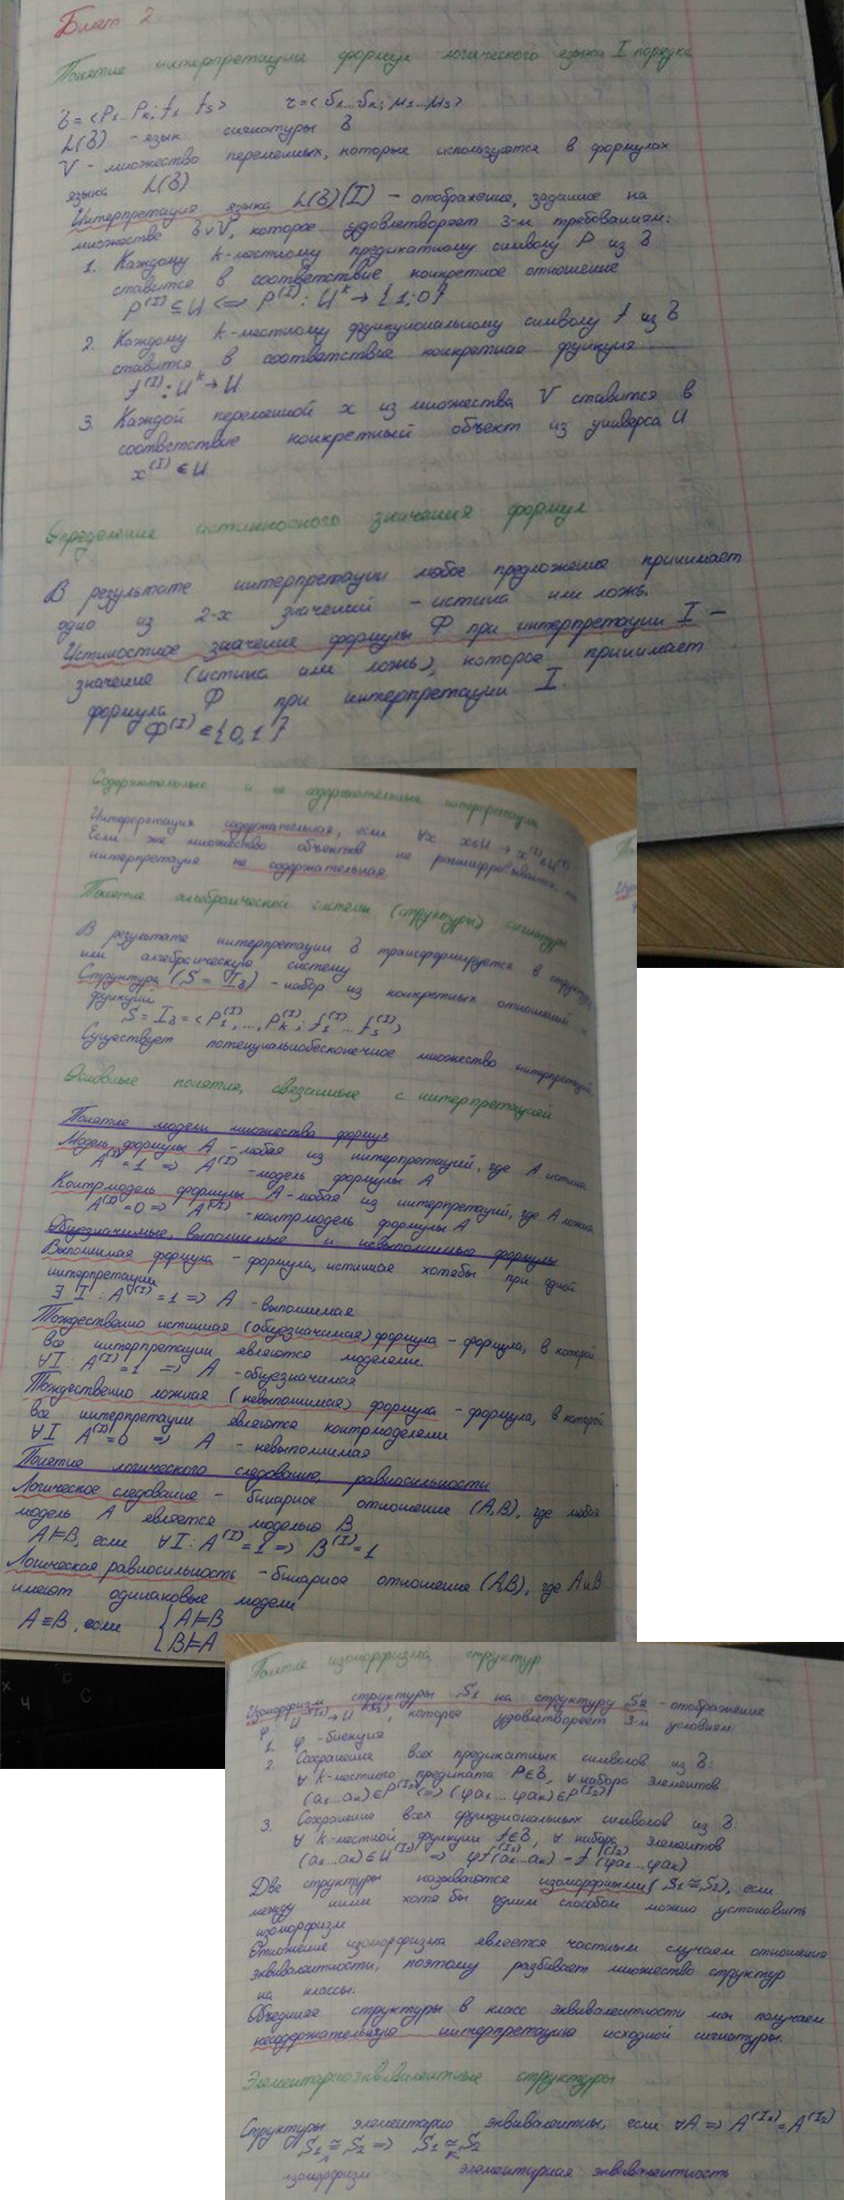 Билет 2
Понятие интерпретации формул логического языка I порядка
б = <P1...Pk; f1 fs> τ = <б1...бk; μ1...μs>
L(б) - язык сигнатуры б
V - множество переменных, которые используются в формулах
языка L(б)
Интерпретация языка L(б)(I) - отображение, заданное на
множестве б∪V, которое удовлетворяет 3-м требованиям:
1. Каждому k-местному предикатному символу P из б
ставится в соответствие конкретное отношение
P^(I) ⊆ U <=> P^(I): U^k → {1;0}
2. Каждому k-местному функциональному символу f из б
ставится в соответствие конкретная функция
f^(I): U^k → U
3. Каждой переменной x из множества V ставится в
соответствие конкретный объект из универса U
x^(I) ∈ U
Определение истинносного значения формул
В результате интерпретации любое предложение принимает
одно из 2-х значений - истина или ложь.
Истиностное значение формулы Ф при интерпретации I -
значение (истина или ложь), которое принимает
формула Ф при интерпретации I.
Ф^(I) ∈ {0,1}
Содержательные и не содержательные интерпретации
Интерпретация содержательная, если ∀x x∈U → x^(I)∈U^(I)
Если же множество объектов не расшифровывается, то
интерпретация не содержательная
Понятие алгебраической системы (структуры) сигнатуры
В результате интерпретации б трансформируется в структуру
или алгебраическую систему
Структура (S = Iб) - набор из конкретных отношений и
функций
S = Iб = <P1^(I), ..., Pk^(I); f1^(I) ... fs^(I)>
Существует потенциальнобесконечное множество интерпретаций
Основные понятия, связанные с интерпретацией
Понятие модели множества формул
Модель формулы A - любая из интерпретаций, где A истина
A^(I)=1 => A^(I) - модель формулы A
Контрмодель формулы A - любая из интерпретаций, где A ложна
A^(I)=0 => A^(I) - контрмодель формулы A
Общезначимые, выполнимые и невыполнимые формулы
Выполнимая формула - формула, истинная хотябы при одной
интерпретации
∃ I : A^(I) = 1 => A - выполнимая
Тождественно истинная (общезначимая) формула - формула, в которой
все интерпретации являются моделями.
∀I : A^(I) = 1 => A - общезначимая
Тождественно ложная (невыполнимая) формула - формула, в которой
все интерпретации являются контрмоделями
∀I A^(I)=0 => A - невыполнимая
Понятие логического следования, равносильности
Логическое следование - бинарное отношение (A,B), где любая
модель A является моделью B
A⊨B, если ∀I: A^(I)=1 => B^(I)=1
Логическая равносильность - бинарное отношение (A,B), где A и B
имеют одинаковые модели
A≡B, если { A⊨B
{ B⊨A
Понятие изоморфизма структур
Изоморфизм структуры S1 на структуру S2 - отображение
φ: U^(I1) → U^(I2), которое удовлетворяет 3-м условиям:
1. φ - биекция
2. Сохранение всех предикатных символов из б:
∀ k-местного предиката P∈б, ∀ набора элементов
(a1...ak)∈P^(I1) <=> (φa1...φak)∈P^(I2)
3. Сохранение всех функциональных символов из б
∀ k-местной функции f∈б, ∀ набора элементов
(a1...ak)∈U^(I1) => φf(a1...ak) = f^(I2)(φa1...φak)
Две структуры называются изоморфными (S1≅S2), если
между ними хотя бы одним способом можно установить
изоморфизм
Отношение изоморфизма является частным случаем отношения
эквивалентности, поэтому разбивает множество структур
на классы.
Объединяя структуры в класс эквивалентности мы получаем
несодержательную интерпретацию исходной сигнатуры.
Элементарноэквивалентные структуры
Структуры элементарно эквивалентны, если ∀A => A^(I1) = A^(I2)
S1 ≅ S2 => S1 ≅ S2
изоморфизм элементарная эквивалентность